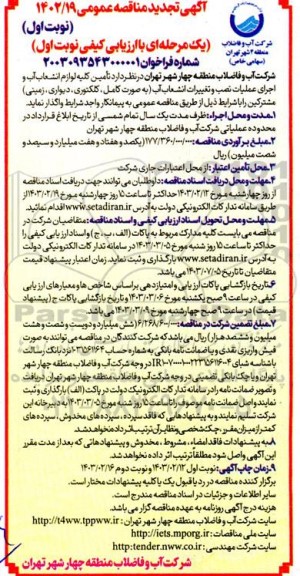 آگهی تجدید مناقصه عمومی ۱۴۰۲/۱۹
(نوبت اول)
(یک مرحله‌ای با ارزیابی کیفی نوبت اول)
شماره فراخوان ۲۰۰۳۰۹۳۵۴۳۰۰۰۰۰۱
شرکت آب و فاضلاب
منطقه ۴ شهر تهران
(سهامی خاص)
شرکت آب و فاضلاب منطقه چهار شهر تهران در نظر دارد تأمین کلیه لوازم انشعاب آب و
اجرای عملیات نصب و تغییرات انشعاب آب (به صورت کامل، کلکتوری، دیواری، زمینی)
مشترکین را با شرایط ذیل از طریق مناقصه عمومی به پیمانکار واجد شرایط واگذار نماید.
۱-مدت و محل اجراء: ظرف مدت یک سال تمام شمسی از تاریخ ابلاغ قرارداد در
محدوده عملیاتی شرکت آب و فاضلاب منطقه چهار شهر تهران
۲-مبلغ برآوردی مناقصه: ۱۷۷/۳۶۰/۰۰۰/۰۰۰ (یکصد و هفتاد و هفت میلیارد و سیصد و
شصت میلیون) ریال
۳-محل تأمین اعتبار: از محل اعتبارات جاری شرکت
۴-مهلت و محل دریافت اسناد مناقصه: داوطلبان می توانند جهت دریافت اسناد مناقصه
از روز چهارشنبه مورخ ۱۴۰۳/۰۲/۱۲ حداکثر تا ساعت ۱۵ روز چهارشنبه مورخ ۱۴۰۳/۰۲/۱۹ از
طریق سامانه تدارکات الکترونیکی دولت به آدرس www.setadiran.ir اقدام نمایند.
۵-مهلت و محل تحویل اسناد ارزیابی کیفی و اسناد مناقصه: متقاضیان شرکت در
مناقصه می بایست کلیه مدارک مربوط به پاکات (الف، ب، ج) و اسناد ارزیابی کیفی را
حداکثر تا ساعت ۱۵ روز شنبه مورخ ۱۴۰۳/۰۳/۰۵ در سامانه تدارکات الکترونیکی دولت
به آدرس www.setadiran.ir بارگذاری و ثبت نمایند. زمان اعتبار پیشنهاد قیمت
متقاضیان تا تاریخ ۱۴۰۳/۰۷/۰۵ می باشد.
۶-تاریخ بازگشایی پاکات ارزیابی و امتیازدهی براساس شاخص ها و معیارهای ارزیابی
کیفی در ساعت ۹ صبح یکشنبه مورخ ۱۴۰۳/۰۳/۰۶ و تاریخ بازگشایی پاکات ج (پیشنهاد
قیمت) در ساعت ۹ صبح چهارشنبه مورخ ۱۴۰۳/۰۳/۰۹ می باشد.
۷-مبلغ تضمین شرکت در مناقصه: (شش میلیارد و دویست و شصت و هشت
میلیون و ششصد هزار) ریال می باشد که شرکت کنندگان در مناقصه می توانند به صورت
فیش واریزی نقدی و یا ضمانت نامه بانکی به شماره حساب نزد بانک رسالت
در وجه شرکت آب و فاضلاب منطقه چهار شهر
تهران و یا چک بانکی تضمینی در وجه شرکت آب و فاضلاب منطقه چهار شهر تهران دریافت
و تصویر ضمانت نامه را در سامانه تدارکات الکترونیک دولت در پاکت الف بارگذاری و ثبت
نمایند و اصل ضمانت نامه را تا ساعت ۱۵ روز شنبه مورخ ۱۴۰۳/۰۳/۰۵ به دبیرخانه این
شرکت تسلیم نمایند و به پیشنهادهایی که فاقد سپرده، سپرده های مخدوش، سپرده های
کمتر از میزان مقرر، چک شخصی و نظایر آن ترتیب اثر داده نخواهد شد.
۸-به پیشنهادات فاقد امضاء، مشروط، مخدوش و پیشنهادهایی که بعد از مدت مقرر
این آگهی واصل شود مطلقا ترتیب اثر داده نخواهد شد.
۹-زمان چاپ آگهی: نوبت اول ۱۴۰۳/۰۲/۱۲ و نوبت دوم ۱۴۰۳/۰۲/۱۶
برگزار کننده مناقصه در رد یا قبول یک یا کلیه پیشنهادات مختار است.
سایر اطلاعات و جزئیات در اسناد مناقصه مندرج است.
هزینه درج آگهی روزنامه به عهده مناقصه گزار می باشد.
سایت شرکت آب و فاضلاب منطقه چهار شهر تهران: http://t4ww.tpww.ir
سایت ملی مناقصات: http://iets.mporg.ir
سایت شرکت مهندسی: http:tender.nww.co.ir
شرکت آب و فاضلاب منطقه چهار شهر تهران